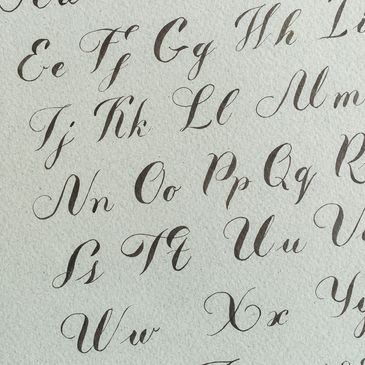 Ee Ff Gg Hh I
Jj Kk Ll Mm
Nn Oo Pp Qq R
Ss Tt Uu V
Ww Xx Yy